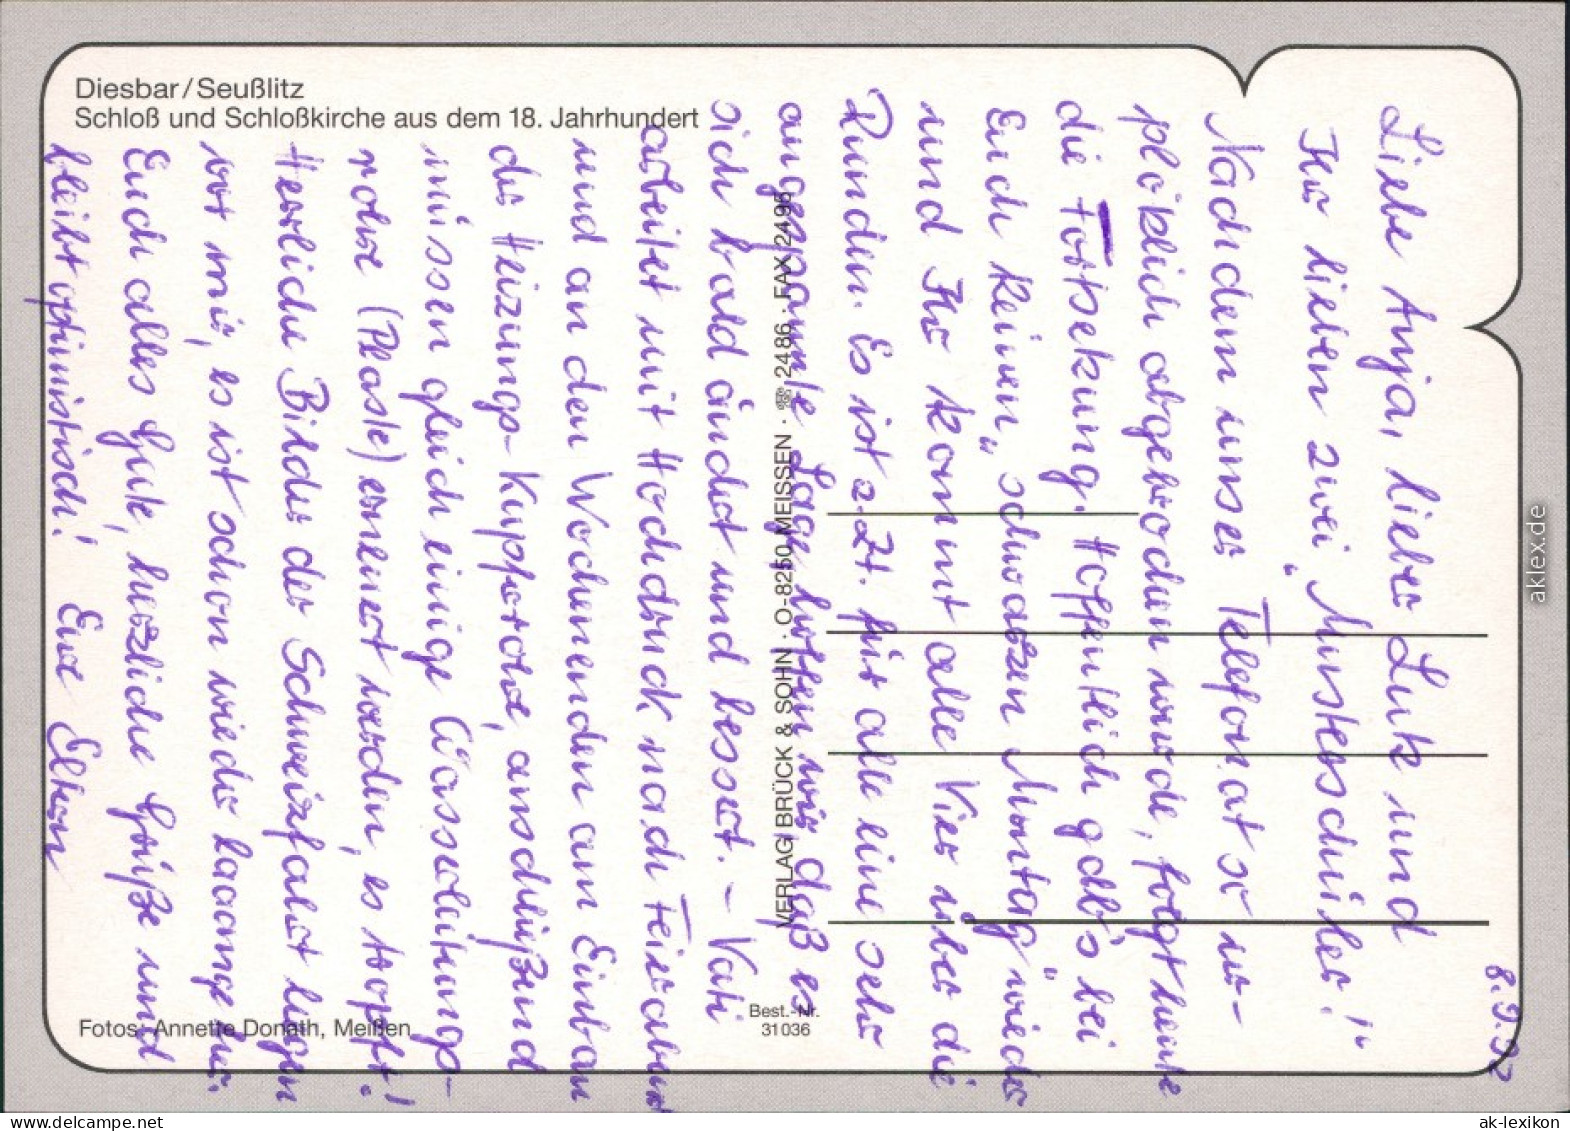 Diesbar/Seußlitz
Schloß und Schloßkirche aus dem 18. Jahrhundert
8.9.92
Liebe Anja, lieber Lutz und
Ihr lieben zwei „Musterschüler!“
Nachdem unser Telefonat so ur-
plötzlich abgebrochen wurde, folgt heute
die Fortsetzung. Hoffentlich gab's bei
Euch keinen „schwarzen Montag“ wieder
und Ihr kommt alle Vier über die
Runden. Es ist z.Zt. für alle eine sehr
angespannte Lage, hoffen wir, daß es
sich bald ändert und bessert. – Vati
arbeitet mit Hochdruck nach Feierabend
und an den Wochenenden am Einbau
der Heizungs-Kupferrohre, anschließend
müssen gleich einige Wasserleitungs-
rohre (Plaste) erneuert werden, es tropft!
Herrliche Bilder der Schweizfahrt liegen
vor mir, es ist schon wieder laaange her.
Euch alles Gute, herzliche Grüße und
bleibt optimistisch! Eure Eltern
VERLAG BRÜCK & SOHN · O-8250 MEISSEN · ☏ 2486 · FAX 2496
Best.-Nr.
31036
Fotos: Annette Donath, Meißen
aklex.de
www.delcampe.net
ak-lexikon